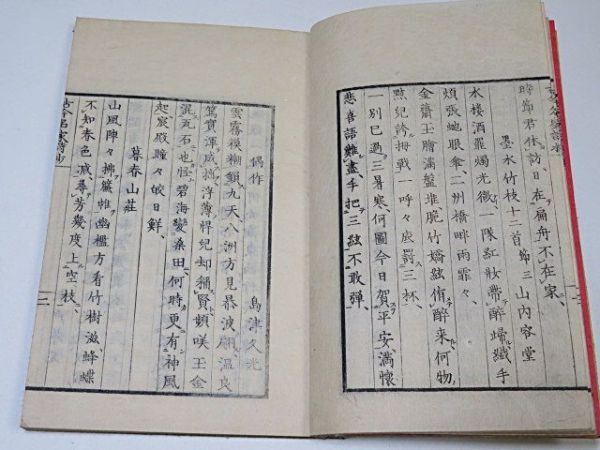 時節君休訪日在扁舟不在家、
墨水竹枝十二首節三山内容堂
水楼酒罷燭光微、一隊紅妝帶醉歸纖手
煩張蛇眼傘、二州橋畔雨霏々、
金虀玉膾満盤堆、脆竹嬌絃侑醉来、何物
黠兒誇拇戦、一呼々座罰三杯、
一別已過三暑寒、何圖今日賀平安、満懐
悲喜語難盡、手把三絃不敢彈、
偶作 島津久光
雲霧模糊鎖九天、八洲方見暴波翻、温良
篤實渾成拙、浮薄 兒却稱賢、頻咲王金
混瓦石、也怪碧海變桑田、何時更有神風
起、宸殿瞳々皎日鮮、
暮春山荘
山風陣々拂簾帷、幽檻方看竹樹滋、蜂蝶
不知春色減、尋芳幾度上空枝、
古今名家詩抄 二